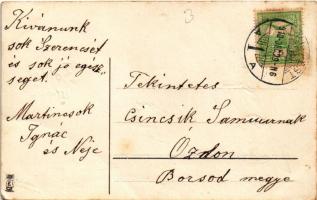 3
Kivánunk
sok Szerencsét
és sok jó egész-
séget.
Martincsok
Ignác
és Neje
Tekintetes
Csincsik Samuurnak
Ózdon
Borsod megye